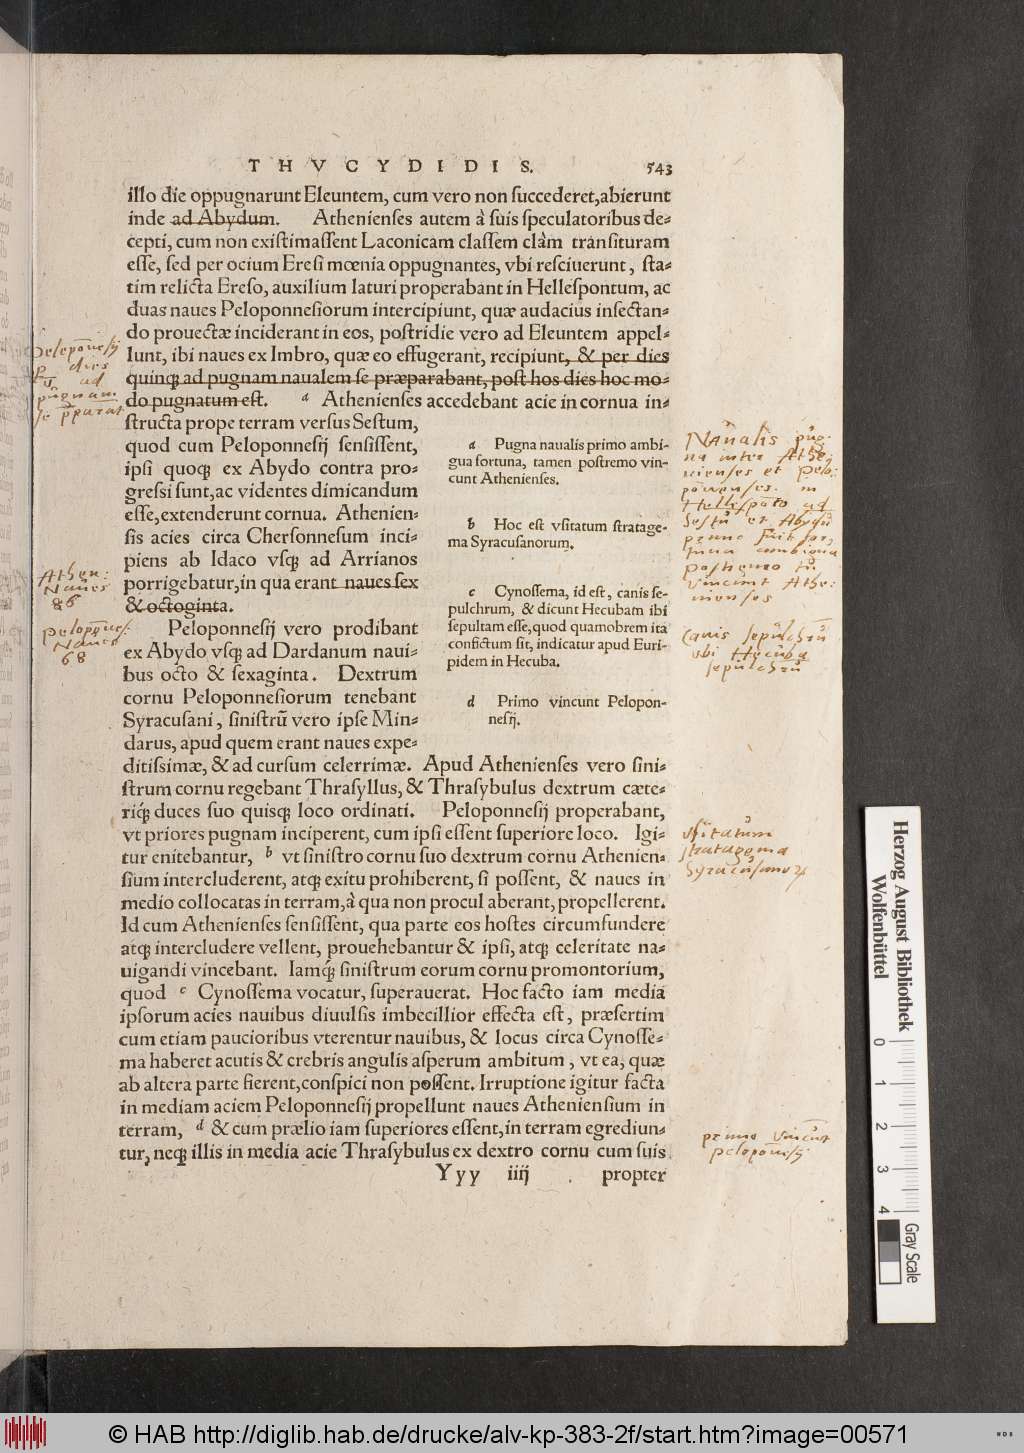 THVCYDIDIS. 543
illo die oppugnarunt Eleuntem, cum vero non succederet, abierunt
inde ad Abydum. Athenienses autem à suis speculatoribus de=
cepti, cum non existimassent Laconicam classem clàm transituram
esse, sed per ocium Eresi mœnia oppugnantes, vbi resciuerunt, sta=
tim relicta Ereso, auxilium laturi properabant in Hellespontum, ac
duas naues Peloponnesiorum intercipiunt, quæ audacius insectan=
do prouectæ inciderant in eos, postridie vero ad Eleuntem appel=
lunt, ibi naues ex Imbro, quæ eo effugerant, recipiunt, & per dies
quinq; ad pugnam naualem se præparabant, post hos dies hoc mo=
do pugnatum est. a Athenienses accedebant acie in cornua in=
structa prope terram versus Sestum,
quod cum Peloponnesij sensissent,
ipsi quoq; ex Abydo contra pro=
gressi sunt, ac videntes dimicandum
esse, extenderunt cornua. Athenien=
sis acies circa Chersonnesum inci=
piens ab Idaco vsq; ad Arrianos
porrigebatur, in qua erant naues sex
& octoginta.
Peloponnesij vero prodibant
ex Abydo vsq; ad Dardanum naui=
bus octo & sexaginta. Dextrum
cornu Peloponnesiorum tenebant
Syracusani, sinistrũ vero ipse Min=
darus, apud quem erant naues expe=
ditissimæ, & ad cursum celerrimæ. Apud Athenienses vero sini=
strum cornu regebant Thrasyllus, & Thrasybulus dextrum cæte=
riq́; duces suo quisq; loco ordinati. Peloponnesij properabant,
vt priores pugnam inciperent, cum ipsi essent superiore loco. Igi=
tur enitebantur, b vt sinistro cornu suo dextrum cornu Athenien=
sium intercluderent, atq; exitu prohiberent, si possent, & naues in
medio collocatas in terram, à qua non procul aberant, propellerent.
Id cum Athenienses sensissent, qua parte eos hostes circumfundere
atq; intercludere vellent, prouehebantur & ipsi, atq; celeritate na=
uigandi vincebant. Iamq́; sinistrum eorum cornu promontorium,
quod c Cynossema vocatur, superauerat. Hoc facto iam media
ipsorum acies nauibus diuulsis imbecillior effecta est, præsertim
cum etiam paucioribus vterentur nauibus, & locus circa Cynosse=
ma haberet acutis & crebris angulis asperum ambitum, vt ea, quæ
ab altera parte fierent, conspici non possent. Irruptione igitur facta
in mediam aciem Peloponnesij propellunt naues Atheniensium in
terram, d & cum prælio iam superiores essent, in terram egrediun=
tur, neq; illis in media acie Thrasybulus ex dextro cornu cum suis
Yyy iiij propter
a Pugna naualis primo ambi-
gua fortuna, tamen postremo vin-
cunt Athenienses.
b Hoc est vsitatum stratage-
ma Syracusanorum.
c Cynossema, id est, canis se-
pulchrum, & dicunt Hecubam ibi
sepultam esse, quod quamobrem ita
confictum sit, indicatur apud Euri-
pidem in Hecuba.
d Primo vincunt Pelopon-
nesij.
pelepōnesij
p dies
v. ad
pugnam
se pparāt
Athen:
Naues
86
pelopōnes:
Naues
68
Naualis pug-
na inter Athe-
nienses et pelo:
pōnenses. in
Hellespōto ad
Sestū et Abydū
primo fuit for,
tuna ambigua
postremo tn̄
vincunt Athe-
nienses
Canis sepulchrū
vbi Hecuba
sepulchrū
vsitatum
stratagema
Syracusanorꝝ
primo vincūt
peloponesij
Herzog August Bibliothek
Wolfenbüttel
0 1 2 3 4
Gray Scale
© HAB http://diglib.hab.de/drucke/alv-kp-383-2f/start.htm?image=00571